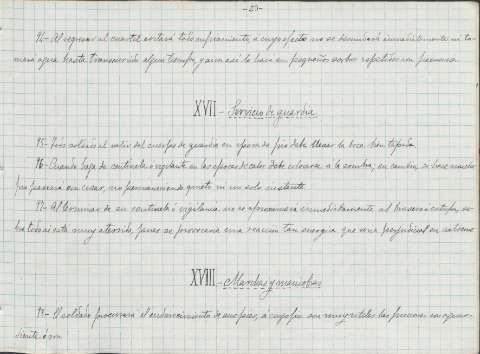 -51-
94- Al regresar al cuartel evitará todo enfriamiento, a cuyo efecto no se desnudará inmediatamente ni to-
mará agua hasta transcurrido algún tiempo, y aun así lo hará en pequeños sorbos repetidos con frecuencia
XVII - Servicio de guardia
95- Todo soldado al salir del cuerpo de guardia en época de frío debe llevar la boca bien tapada
96- Cuando haga de centinela o vigilante en las épocas de calor debe colocarse a la sombra; en cambio, si hace mucho
frío procurará no cesar, no permaneciendo quieto ni un solo instante
97- Al terminar de su centinela o vigilancia no se aproximará inmediatamente al brasero o estufa, so-
bre todo si está muy aterido, pues se provocaría una reacción tan enérgica que sería perjudicial en extremo
XVIII - Marchas y maniobras
98- El soldado procurará el endurecimiento de sus pies, a cuyo fin son muy útiles las
diente o ron